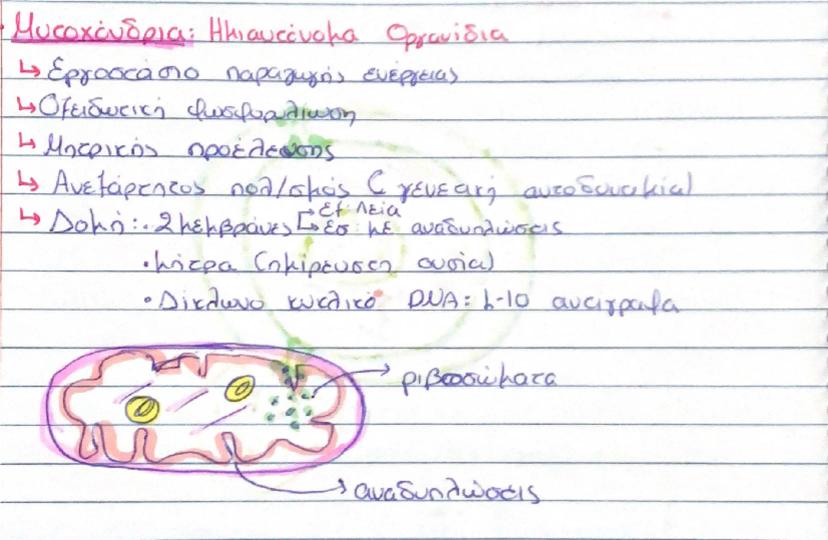 Μιτοχόνδρια: Ημιαυτόνομα Οργανίδια
↳ Εργοστάσιο παραγωγής ενέργειας
↳ Οξειδωτική φωσφορυλίωση
↳ Μητρικής προέλευσης
↳ Ανεξάρτητος πολ/σμός (γενετική αυτοδυναμία)
↳ Δομή: • 2 μεμβράνες → εξ λεία
→ εσ με αναδιπλώσεις
• μήτρα (ημίρευστη ουσία)
• Δίκλωνο κυκλικό DNA: 2-10 αντίγραφα
ριβοσώματα
αναδιπλώσεις